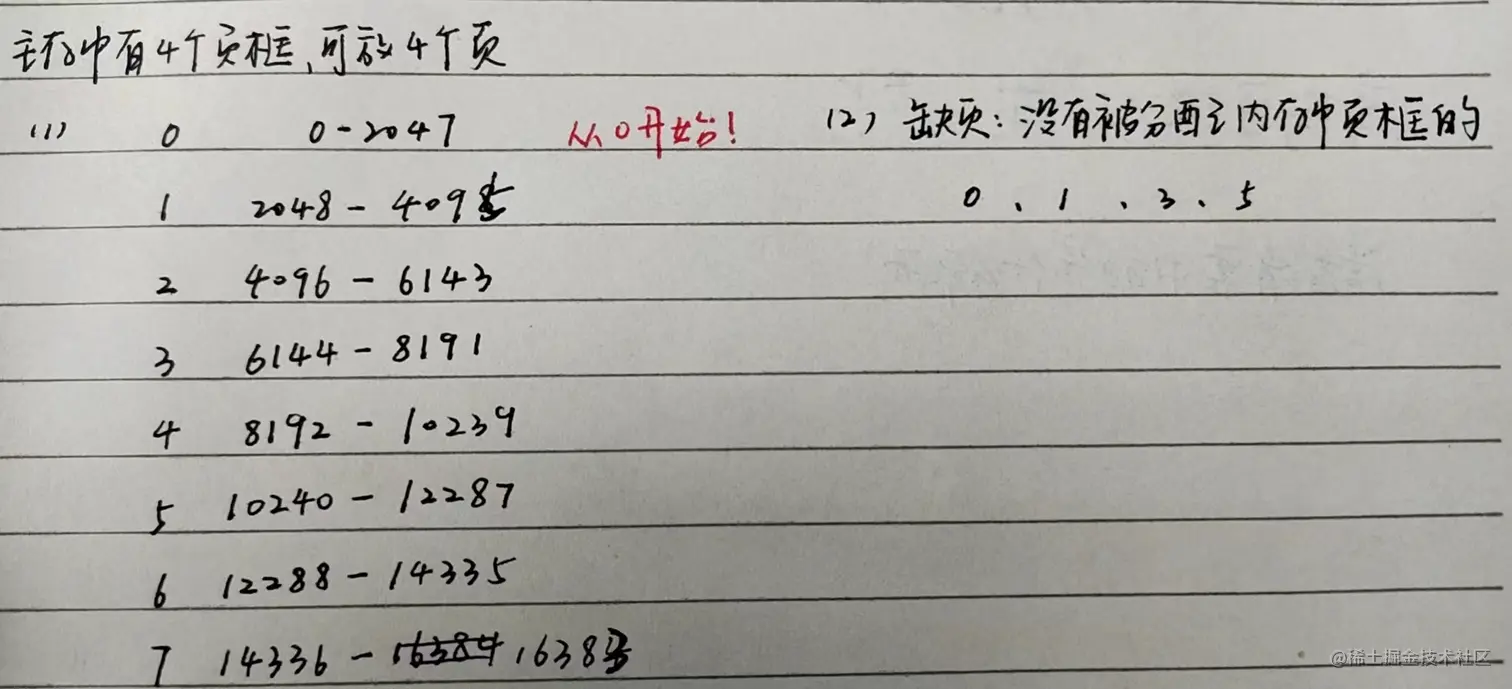 主存中有4个页框,可放4个页
(1) 0 0-2047 从0开始!
1 2048-4095
2 4096-6143
3 6144-8191
4 8192-10239
5 10240-12287
6 12288-14335
7 14336-16384 16383
(2) 缺页:没有被分配主内存中页框的
0、1、3、5
@稀土掘金技术社区